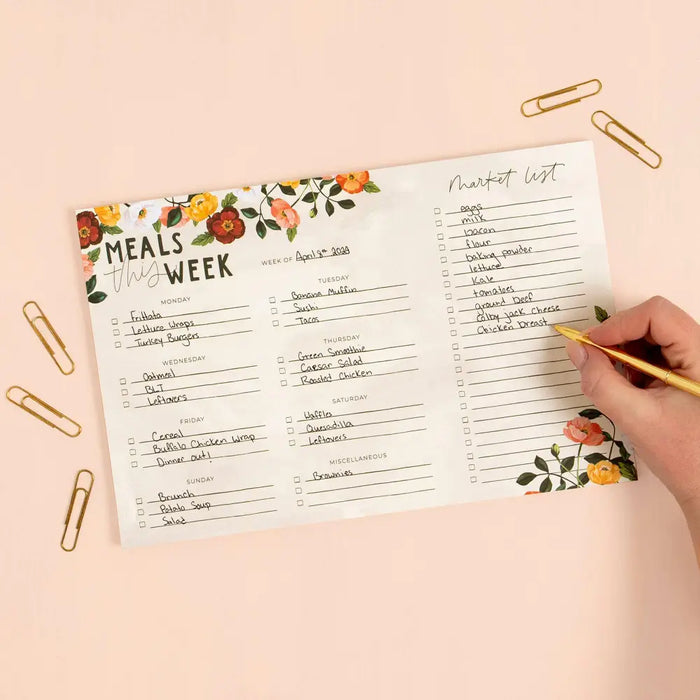 MEALS
this WEEK
WEEK OF April 8th 2023
MONDAY
Frittata
Lettuce Wraps
Turkey Burgers
TUESDAY
Banana Muffin
Sushi
Tacos
WEDNESDAY
Oatmeal
BLT
Leftovers
THURSDAY
Green Smoothie
Caesar Salad
Roast Chicken
FRIDAY
Cereal
Buffalo Chicken Wrap
Dinner out!
SATURDAY
Waffles
Quesadilla
Leftovers
SUNDAY
Brunch
Potato Soup
Salad
MISCELLANEOUS
Brownies
Market List
eggs
milk
bacon
flour
baking powder
lettuce
Kale
tomatoes
ground beef
colby jack cheese
Chicken breast